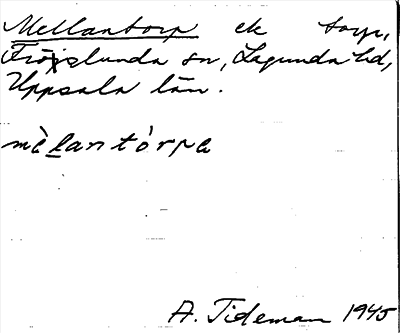 Mellantorp ek torp,
Fröslunda sn, Lagunda hd,
Uppsala län.
mèlantórpa
A. Tideman 1945